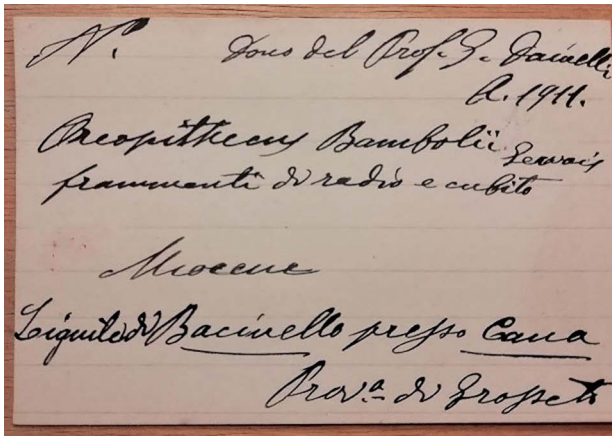 N. Dono del Prof. G. Dainelli
A. 1911.
Oreopithecus Bambolii Gervais
frammenti di radio e cubito
Miocene
Lignite di Bacinello presso Cana
Prov.a di Grosseto